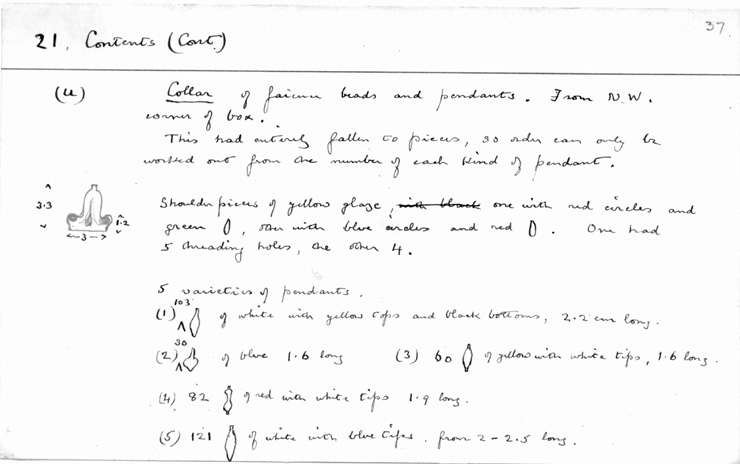 37.
21. Contents (Cont.)
(u) Collar of faience beads and pendants. From N.W.
corner of box.
This had entirely fallen to pieces, so order can only be
worked out from the number of each kind of pendant.
3.3
1.2
3
Shoulder pieces of yellow glaze, with black one with red circles and
green , other with blue circles and red . One had
5 threading holes, the other 4.
5 varieties of pendants.
(1) 103 of white with yellow tops and black bottoms, 2.2 cm long.
(2) 30 of blue 1.6 long (3) 60 of yellow with white tips, 1.6 long.
(4) 82 of red with white tips 1.9 long.
(5) 121 of white with blue tips. from 2 - 2.5 long.